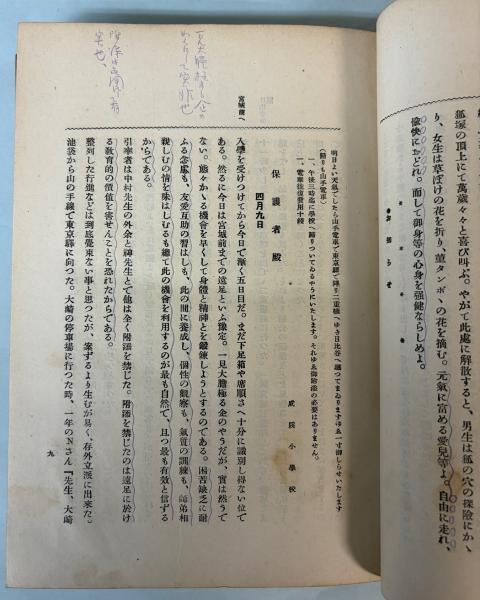 狐塚の頂上にて萬歳々々と喜び叫ぶ。やがて此處に解散すると、男生は狐の穴の探險にか
り、女生は草ぼけの花を折り、菫タンポヽの花を摘む。元氣に富める愛兒等よ。自由に走れ、
愉快におどれ。而して御身等の心身を强健ならしめよ。
宮城前へ
明日よい天氣でしたら山手電車で東京驛で降り二重橋へゆき日比谷へ廻つてまゐりますゆゑ一寸御しらせいたします
(歸りも山手電車)
一、午後三時迄に學校へ歸りついてゐるやうにいたします。それゆゑ御附添の必要はありません。
一、電車往復費用十錢
成蹊小學校
保護者殿
四月九日
入學を受けつけてから今日で漸く五日目だ。まだ下足箱や席順さへ十分に識別し得ない位で
ある。然るに今日は宮城前までの遠足といふ豫定。一見大膽極る企のやうだが、實は然うで
ない。態々かゝる機會を早くして身體と精神とを鍛鍊しようとするのである。困苦缺乏に耐
ふる念慮も、友愛互助の習はしも、此の間に養成し、個性の觀察も、氣質の訓練も、師弟相
親しむの情を味はしむるも總て此の機會を利用するのが最も自然で、且つ最も有效と信ずる
からである。
引率者は中村先生の外余と神先生とで他は全く附添を禁じた。附添を禁じたのは遠足に於け
る敎育的の價値を害せんことを恐れたからである。
整列した行進などは到底覺束ない事と思つたが、案ずるより生むが易く、存外立派に出來た。
池袋から山の手線で東京驛に向つた。大崎の停車場に行つた時、一年のNさん『先生、大崎
九